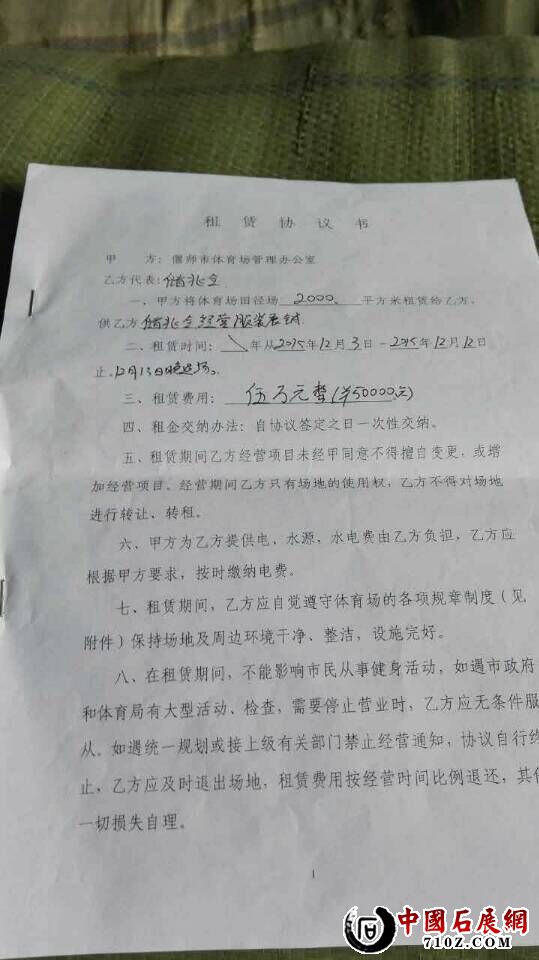 租赁协议书
甲 方：偃师市体育场管理办公室
乙方代表：储兆立
一、甲方将体育场田径场 2000 平方米租赁给乙方，
供乙方 储兆立经营服装展销
二、租赁时间： 年从2015年12月3日－2015年12月12日
止。12月13日晚退场。
三、租赁费用： 伍万元整(¥50000元)
四、租金交纳办法：自协议签定之日一次性交纳。
五、租赁期间乙方经营项目未经甲同意不得擅自变更，或增
加经营项目。经营期间乙方只有场地的使用权，乙方不得对场地
进行转让、转租。
六、甲方为乙方提供电、水源，水电费由乙方负担，乙方应
根据甲方要求，按时缴纳电费。
七、租赁期间，乙方应自觉遵守体育场的各项规章制度（见
附件）保持场地及周边环境干净、整洁，设施完好。
八、在租赁期间，不能影响市民从事健身活动，如遇市政府
和体育局有大型活动、检查，需要停止营业时，乙方应无条件服
从。如遇统一规划或接上级有关部门禁止经营通知，协议自行终
止，乙方应及时退出场地，租赁费用按经营时间比例退还，其他
一切损失自理。
1
中國石展網
71OZ.COM